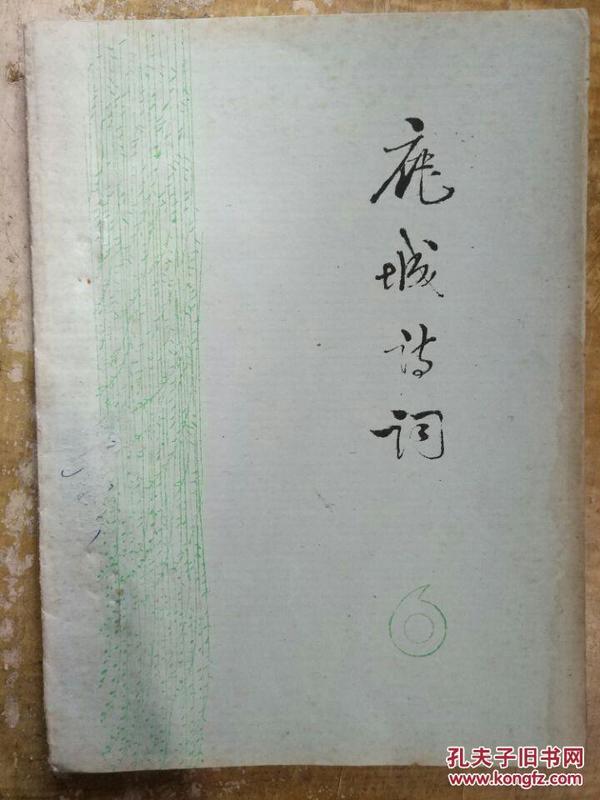 鹿城诗词
6
孔夫子旧书网
www.kongfz.com